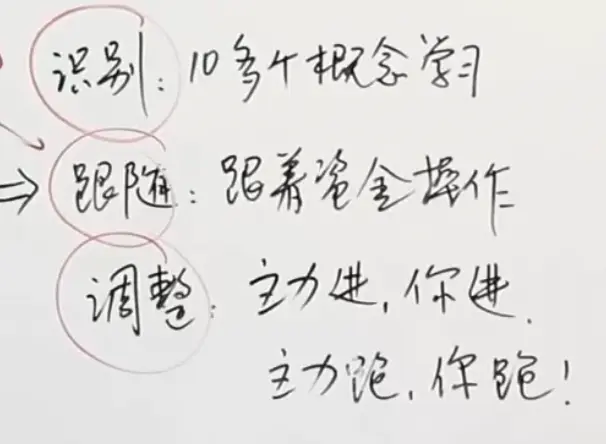 识别：10多个概念学习
⇒ 跟随：跟着资金操作
调整：主力进，你进．
主力跑，你跑！